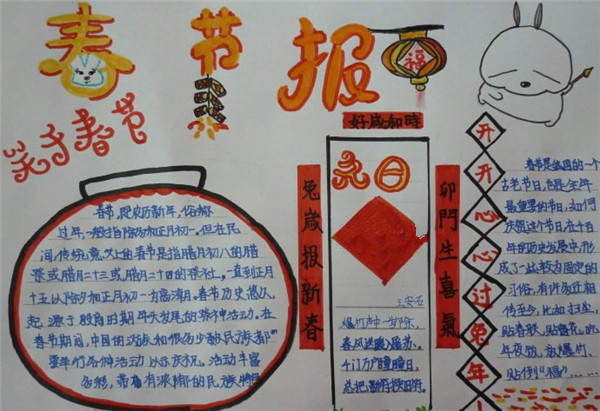 春节报
福
关于春节
好歲和時
兔歲报新春
卯門生喜氣
元日
王安石
爆竹声中一岁除,
春风送暖入屠苏。
千门万户瞳瞳日,
总把新符换旧符
春节,即农历新年,俗称
过年,一般指除夕和正月初一。但在民
间传统意义上的春节是指腊月初八的腊
祭或腊月二十三或腊月二十四的祭灶。一直到正月
十五以除夕和正月初一为高潮。春节历史悠久
起源于殷商时期年头岁尾的祭神活动。在
春节期间,中国的汉族和很多少数民族都
要举行各种活动以示庆祝。活动丰富
多彩,带有浓郁的民族特色
开开心心过兔年
春节是我国的一个
古老节日,也是全年
最重要的节日,如何
庆祝这个节日在千百
年的历史发展中,形
成了一些较为固定的
习俗,有许多还相
传至今,比如扫尘,
贴春联,贴窗花,吃
年夜饭,放爆竹、
贴倒“福”……